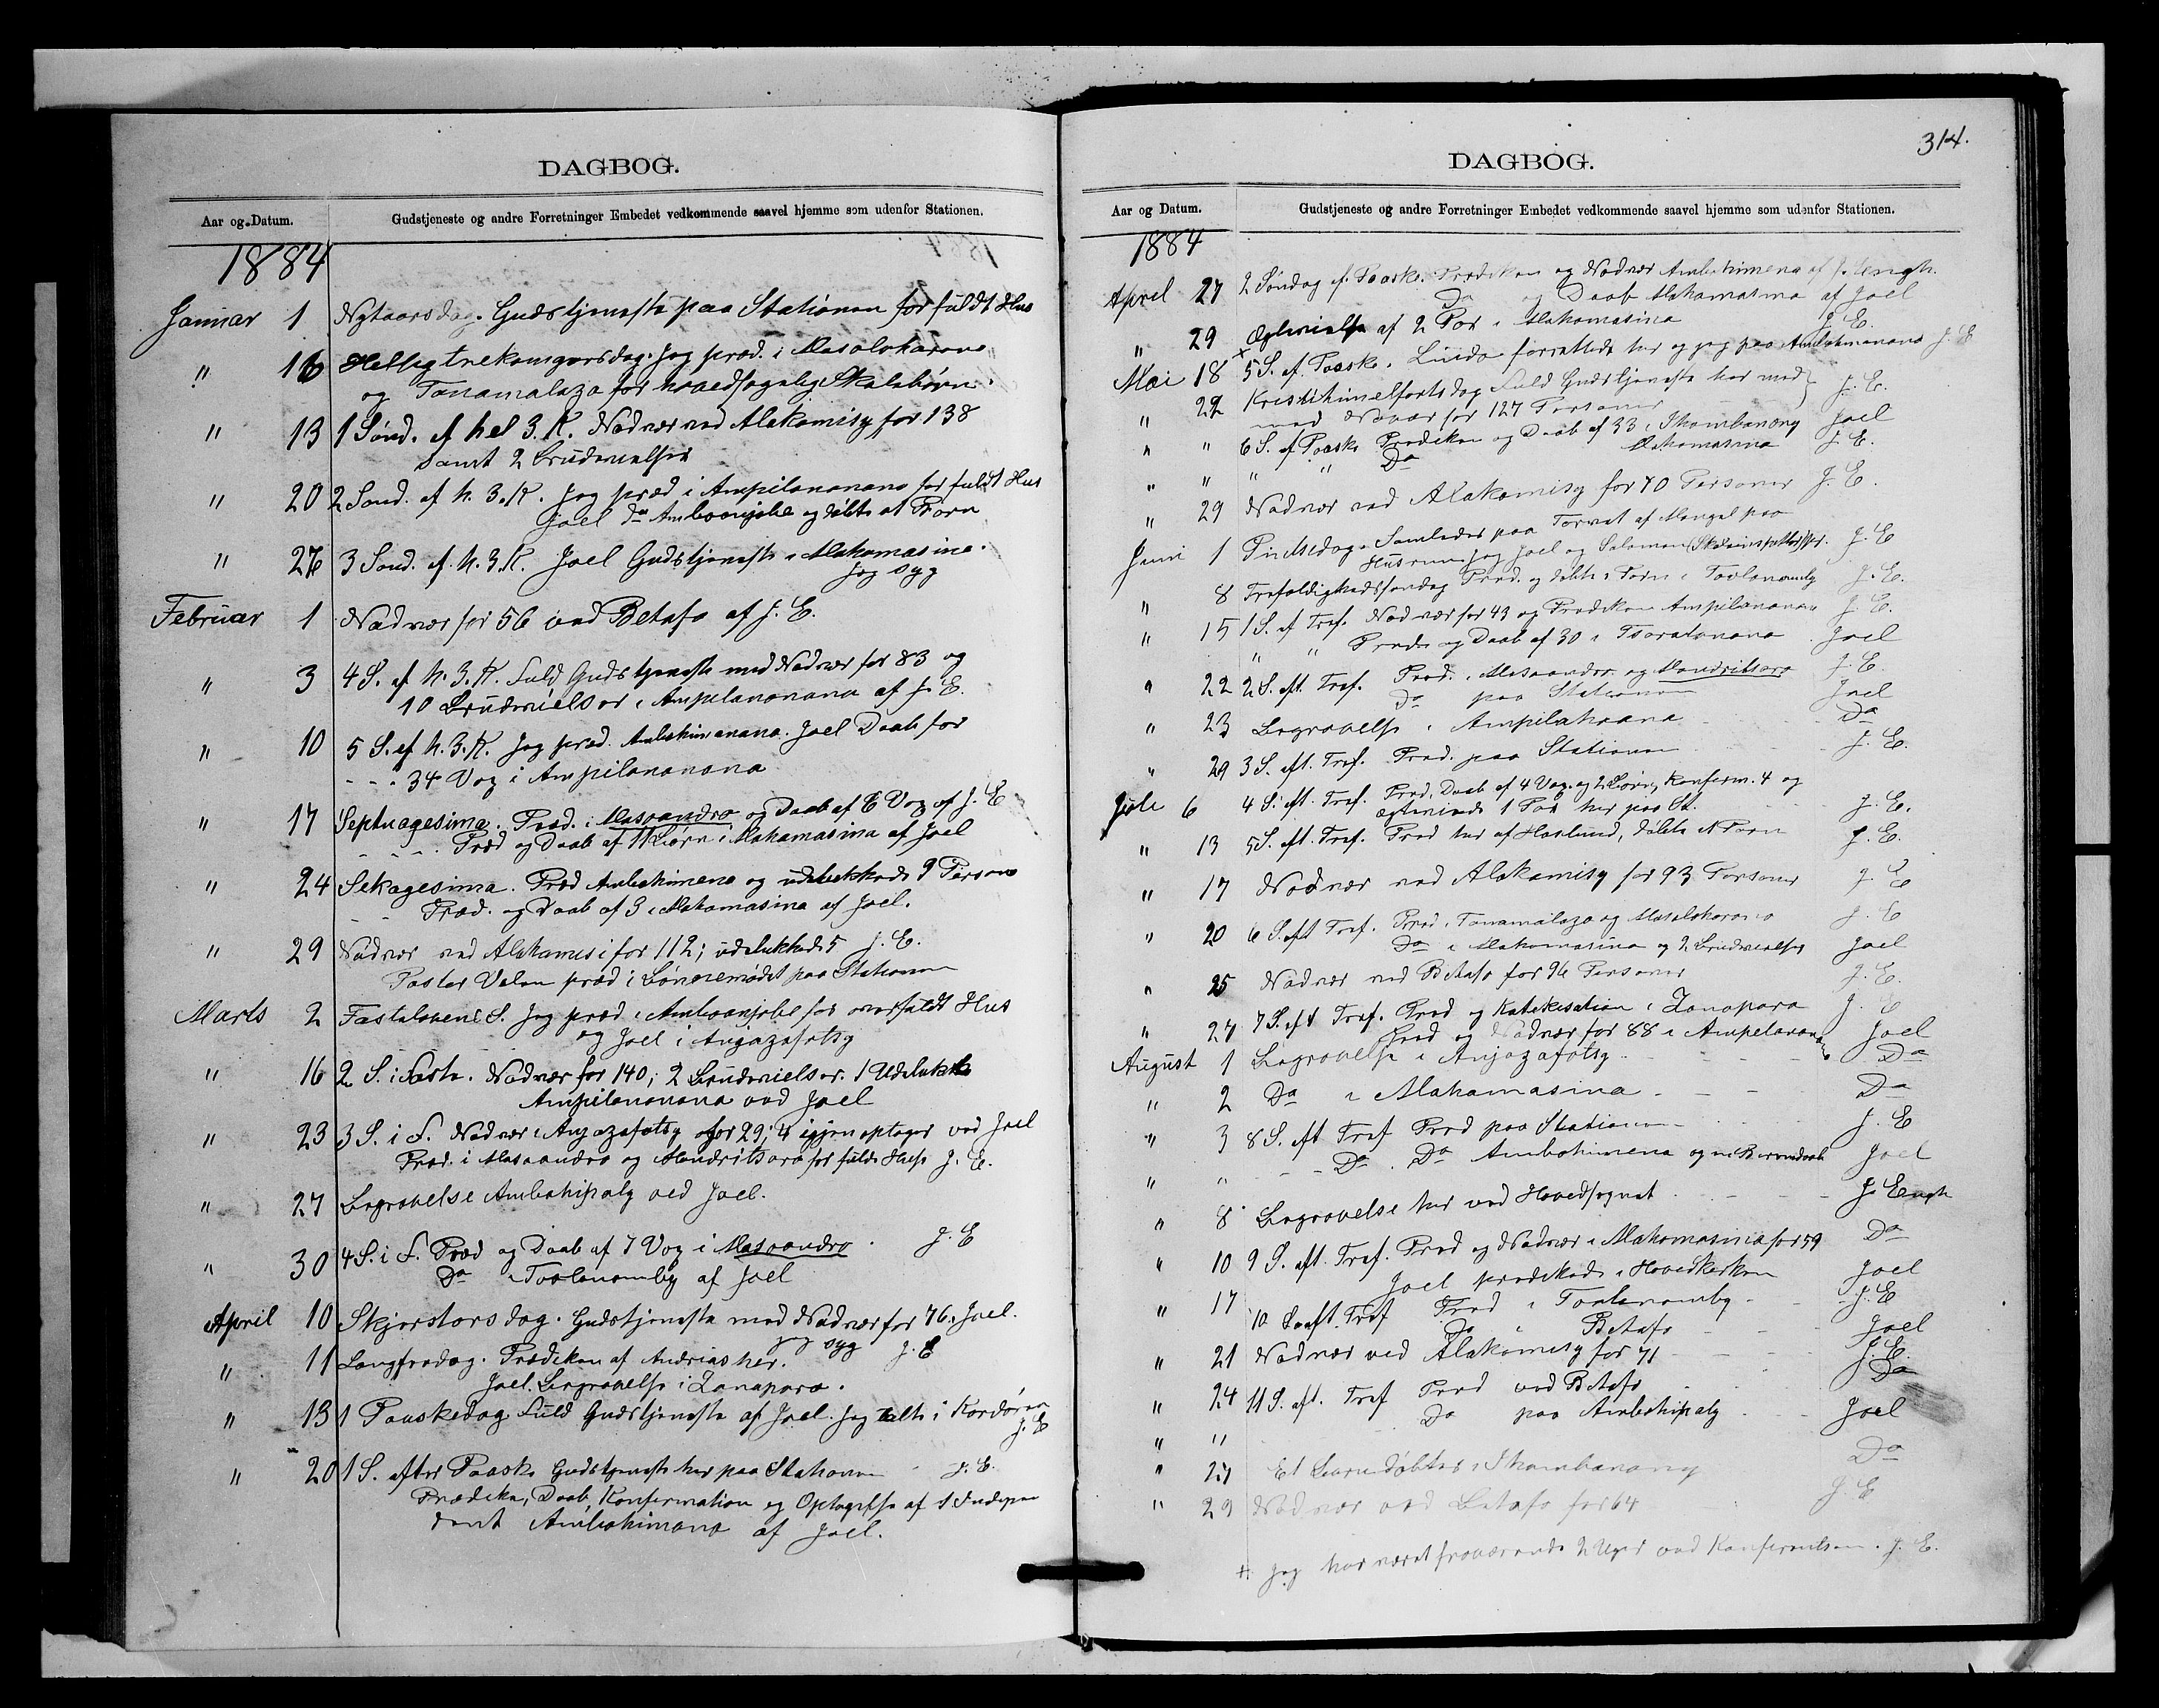 DAGBOG.
Aar og Datum. Gudstjeneste og andre Forretninger Embedet vedkommende saavel hjemme som udenfor Stationen.
1884
Januar 1 Nytaarsdag. Gudstjeneste paa Stationen for fuldt Hus
" 6 Helligtrekongersdag. Jeg præd. i Masolokarana
og Tanamalaza for hovedsagelig Skolebørn.
" 13 1 Sønd. ef hel 3. K. Nadver ved Alakamisy for 138
samt 2 Brudevielser
" 20 2 Sønd. ef h. 3. K. Jeg præd i Ampilanonana for fuldt Hus
Joel Do Amboanjobe og døbte et Barn
" 27 3 Sønd. ef. h. 3. K. Joel Gudstjeneste i Mahamasina.
Jeg syg
Februar 1 Nadver for 56 ved Betafo af J. E.
" 3 4 S. ef h. 3. K. Fuld Gudstjeneste med Nadver for 83 og
10 Brudevielser i Ampilanonana af J. E.
" 10 5 S. ef h. 3. K. Jeg præd. Ambohimanana. Joel Daab for
- - - 34 Vox i Ampilanonana
" 17 Septuagesima. Præd. i Masoandro og Daab af 6 Vox af J. E
- - - Præd og Daab af 11 Børn i Mahamasina af Joel
" 24 Seksagesima. Præd Ambohimena og udelukkede 9 Person
- - Præd. og Daab af 3 i Mahamasina af Joel.
" 29 Nadver ved Alakamisi for 112; udelukkede 5 J. E.
Pastor Valen præd i Bønnemødet paa Stationen
Marts 2 Fastelavens S. Jeg præd i Amboanjobe for overfuldt Hus
og Joel i Anjazafotsy
" 16 2 S. i Faste. Nadver for 140; 2 Brudevielser. 1 Udelukke
Ampilanonana ved Joel
" 23 3 S. i F. Nadver i Anjazafotsy for 29; 4 igjenoptager ved Joel
Præd. i Masoandro og Mandritsara for fulde Huse J. E.
" 27 Begravelse Ambohipoly ved Joel.
" 30 4 S. i F. Præd og Daab af 7 Vox i Masoandro. J. E
Do i Tvolanomby af Joel
April 10 Skjærstorsdag. Gudstjeneste med Nadver for 76, Joel.
jeg syg
" 11 Langfredag. Prædiken af Andrias her. J. E
Joel Begravelse i Zanapara.
" 13 1 Paaskedag Fuld Gudstjeneste af Joel. Jeg talte i Kordøren
J. E
" 20 1 S. efter Paaske Gudstjeneste her paa Stationen J. E.
Prædike, Daab, Konfirmation og Optagelse af 1 Indepen
dent Ambohimana af Joel.
314.
DAGBOG.
Aar og Datum. Gudstjeneste og andre Forretninger Embedet vedkommende saavel hjemme som udenfor Stationen.
1884
April 27 2 Søndag ef. Paaske. Prædiken og Nadver Ambohimena af J. Engh.
Do og Daab Mahamasina af Joel
" 29 Ægtevielse af 2 Par i Mahamasina J. E.
Mai 18 × 5 S. ef. Paaske. Lindo forrettede her og jeg paa Ambohimanana J. E
" 22 Kristihimelfartsdag Fuld Gudstjeneste her med
med Nadver for 127 Personer J. E.
" " 6 S. ef Paaske Prædiken og Daab af 33 i Ihambanony Joel
" " " " Do Mahamasina J. E.
" 29 Nadver ved Alakamisy for 70 Personer J. E.
Juni 1 Pindsedag. Samledes paa Torvet af Mangel paa
Husrum. Jeg Joel og Salomon J. E
" 8 Trefoldighedssøndag Præd. og døbte 1 Barn i Tvolanomby J. E.
" 15 1 S. ef Tref. Nadver for 43 og Prædiken Ampilanonana J. E.
" " Præd. og Daab af 30 i Tsaratanana Joel
" 22 2 S. eft. Tref. Præd. i Masoandro og Mandritsara J. E.
Do paa Stationen Joel
" 23 Begravelse i Ampilahoana Do
" 29 3 S. eft. Tref. Præd. paa Stationen J. E.
Juli 6 4 S. eft. Tref. Præd, Daab af 4 Vox. og 2 Børn, Konfirm. 4 og
ægteviede 1 Par her paa St. J. E.
" 13 5 S. eft. Tref. Præd her af Haslund, døbte et Barn J. E.
" 17 Nadver ved Alakamisy for 93 Personer J. E
" 20 6 S. eft Tref. Præd i Tanamalaza og Masolokarana J. E
Do i Mahamasina og 2 Brudevielser Joel
" 25 Nadver ved Betafo for 96 Personer J. E.
" 27 7 S. eft Tref. Præd og Katekisation i Zanapara J. E
Præd og Nadver for 88 i Ampilanonana Joel
August 1 Begravelse i Anjazafotsy Do
" 2 Do i Mahamasina Do
" 3 8 S. eft Tref Præd paa Stationen J. E
" " - - Do. Do Ambohimena og Joel
" 8 Begravelse her ved Hovedsognet J. Engh
" 10 9 S. eft. Tref. Præd og Nadver i Mahamasina for 59 Do
Joel prædikede i Hovedkirken Joel
" 17 10 S. eft. Tref Præd i Tvolanomby J. E
Do i Betafo Joel
" 21 Nadver ved Alakamisy for 71 J. E.
" 24 11 S. eft. Tref Præd ved Betafo Do
" " Do paa Ambohipoly Joel
" 27 Et Barn døbtes i Ihambanony Do
" 29 Nadver ved Betafo for 64 J. E
×. Jeg har været fraværende 2 Uger ved Konferentsen. J. E.